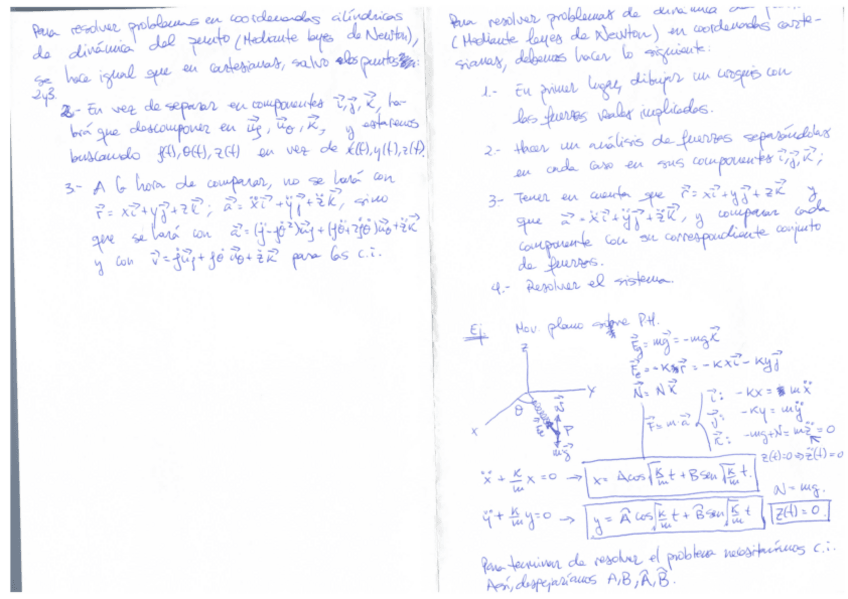 Para resolver problemas en coordenadas cilíndricas
de dinámica del punto (Mediante leyes de Newton),
se hace igual que en cartesianas, salvo los puntos:
2 y 3.
2.- En vez de separar en componentes i⃗, j⃗, k⃗, ha-
brá que descomponer en u⃗ρ, u⃗θ, k⃗, y estaremos
buscando ρ(t), θ(t), z(t) en vez de x(t), y(t), z(t).
3.- A la hora de comparar, no se hará con
r⃗ = xi⃗ + yj⃗ + zk⃗; a⃗ = ẍi⃗ + ÿj⃗ + z̈k⃗, sino
que se hará con a⃗ = (ρ̈ - ρθ̇²)u⃗ρ + (ρθ̈ + 2ρ̇θ̇)u⃗θ + z̈k⃗
y con v⃗ = ρ̇u⃗ρ + ρθ̇u⃗θ + żk⃗ para las c.i.
Para resolver problemas de dinámica
(Mediante leyes de Newton) en coordenadas carte-
sianas, debemos hacer lo siguiente:
1.- En primer lugar, dibujar un croquis con
las fuerzas reales implicadas.
2.- Hacer un análisis de fuerzas separándolas
en cada caso en sus componentes i⃗, j⃗, k⃗;
3.- Tener en cuenta que r⃗ = xi⃗ + yj⃗ + zk⃗ y
que a⃗ = ẍi⃗ + ÿj⃗ + z̈k⃗, y comparar cada
componente con su correspondiente conjunto
de fuerzas.
4.- Resolver el sistema.
Ej Mov. plano sobre P.H.
F⃗g = mg⃗ = -mgk⃗
F⃗e = -Kr⃗ = -Kxi⃗ - Kyj⃗
N⃗ = Nk⃗
z
y
x
θ
N⃗
P
mg⃗
F⃗ = m·a⃗
i⃗: -Kx = mẍ
j⃗: -Ky = mÿ
k⃗: -mg + N = mz̈ = 0
z(t)=0 ⇒ z̈(t)=0
ẍ + K/m x = 0 → x = A cos √(K/m) t + B sen √(K/m) t.
N = mg.
ÿ + K/m y = 0 → y = Â cos √(K/m) t + B̂ sen √(K/m) t
z(t) = 0.
Para terminar de resolver el problema necesitaríamos c.i.
Así, despejaríamos A, B, Â, B̂.